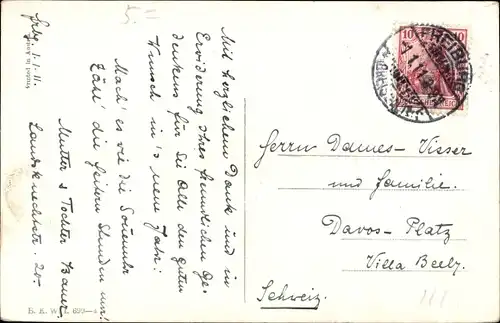 5.=
Frbg. 1.1.11.
Mit herzlichem Dank und in
Erwiderung Ihres freundlichen Ge-
denkens für Sie Alle den guten
Wunsch in's neue Jahr:
Mach' es wie die Sonnenuhr
Zähl' die heitern Stunden nur!
Mutter & Tochter Bauer
Landsknechtstr. 20.
B. K. W. I. 693-4
10 10
FREIBURG
1.1.11
Herrn Dames-Visser
und Familie.
Davos-Platz
Villa Beely.
Schweiz.